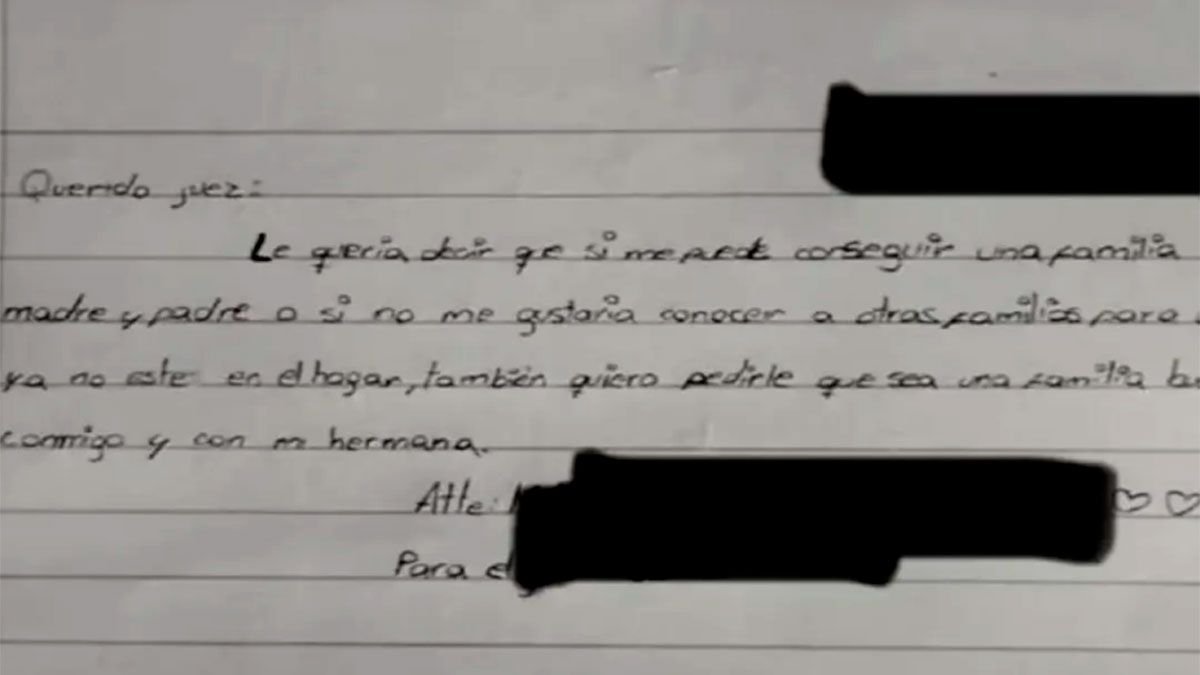 Querido juez:
Le queria decir que si me puede conseguir una familia
madre y padre o si no me gustaria conocer a otras familias para
ya no este en el hogar, también quiero pedirle que sea una familia
conmigo y con mi hermana.
Atte:
Para el